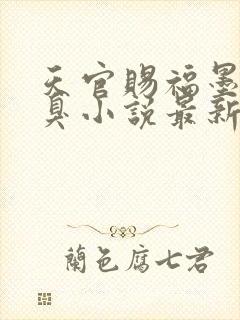 天官賜福墨
臭小說最新
蘭色腐七君